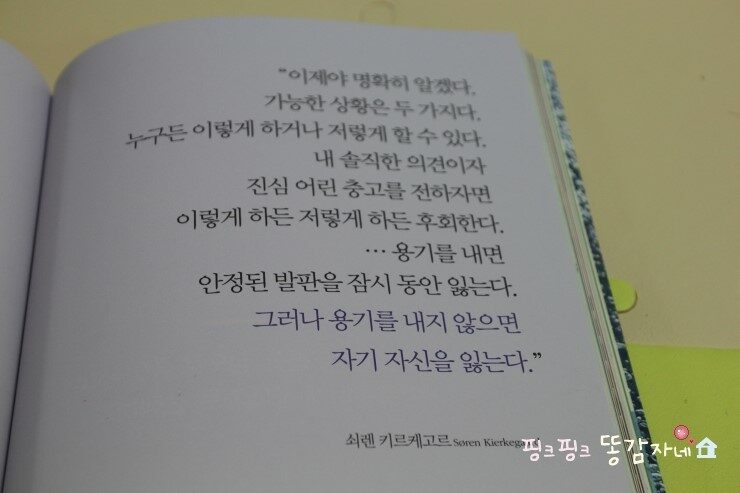 “이제야 명확히 알겠다.
가능한 상황은 두 가지다.
누구든 이렇게 하거나 저렇게 할 수 있다.
내 솔직한 의견이자
진심 어린 충고를 전하자면
이렇게 하든 저렇게 하든 후회한다.
… 용기를 내면
안정된 발판을 잠시 동안 잃는다.
그러나 용기를 내지 않으면
자기 자신을 잃는다.”
쇠렌 키르케고르 Søren Kierkegaard
핑크핑크 똥감자네